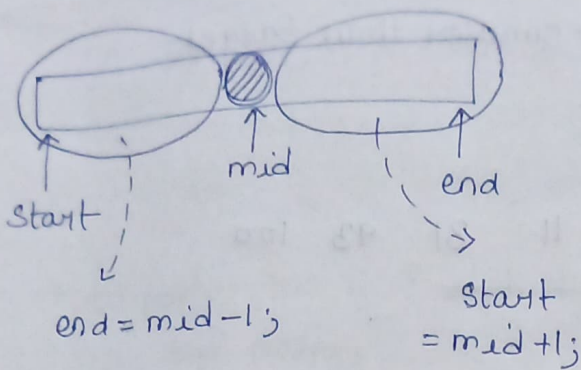 mid
end
start
end = mid - 1;
start
= mid + 1;